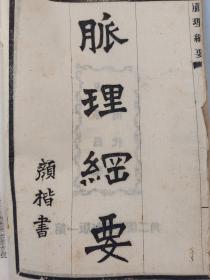 脈理綱要
顏楷書
脈理綱要